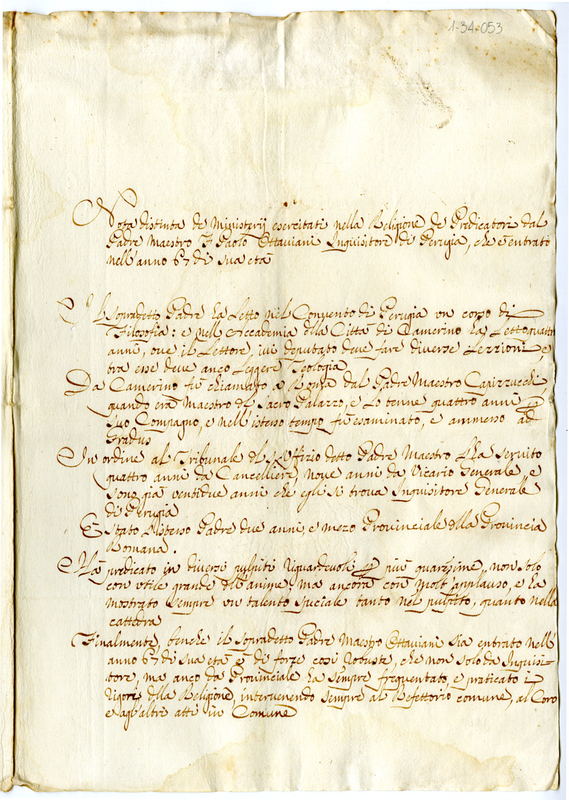 1-34-053
Nota distinta de Ministerij esercitati nella Religione de Predicatori dal
Padre Maestro F Paolo Ottaviani Inquisitore di Perugia, che è entrato
nell'anno 67 di sua età
Il sopradetto Padre ha Letto nel Convento di Perugia un corso di
Filosofia: e nell'Accademia della Città di Camerino ha Letto quattro
anni, ove il Lettore, ivi deputato deve fare diverse Lezzioni, e
tra esse deve anco Leggere Teologia
Da Camerino fu chiamato a Roma dal Padre Maestro Capizzucchi
quando era Maestro del Sacro Palazzo, e lo tenne quattro anni per
suo Compagno, e nell'istesso tempo fu esaminato, e ammesso ad
Gradus
In ordine al Tribunale del S Offizio detto Padre Maestro ha servito
quattro anni da Cancelliere, nove anni da Vicario Generale, e
sono già ventidue anni che egli si trova Inquisitore Generale
di Perugia
È stato l'istesso Padre due anni, e mezo Provinciale della Provincia
Romana.
Ha predicato in diversi pulpiti riguardevoli per più quaresime, non solo
con utile grande dell'anime, ma ancora con molt'applauso, e ha
mostrato sempre un talento speciale tanto nel pulpito, quanto nella
cattedra
Finalmente, benche il sopradetto Padre Maestro Ottaviani sia entrato nell'
anno 67 di sua età è di forze così robuste, che non solo da Inquisi-
tore, ma anco da Provinciale ha sempre frequentato, e praticato i
rigori della Religione, intervenendo sempre al Refettorio comune, al Coro
e agl'altri atti in Comune